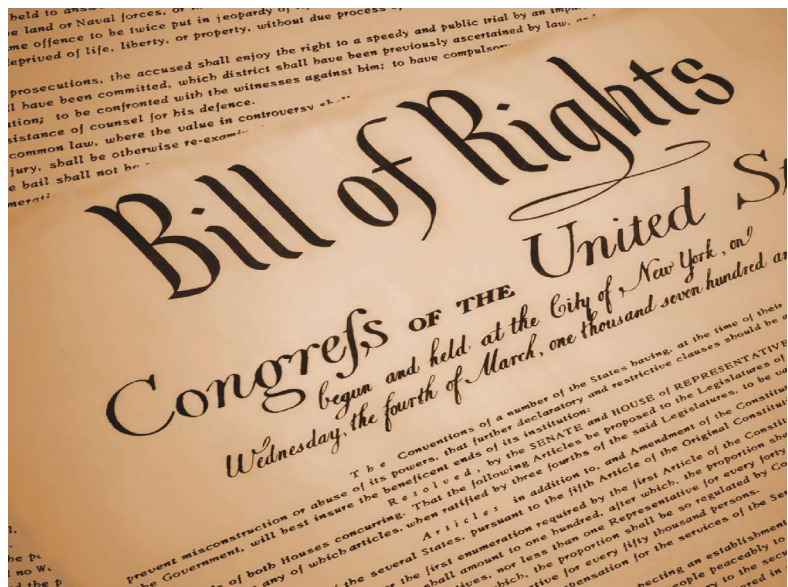 held to answ
e land or Naval forces, or
me offence to be twice put in jeopardy of
deprived of life, liberty, or property, without due process of
prosecutions, the accused shall enjoy the right to a speedy and public trial by an impa
ll have been committed, which district shall have been previously ascertained by law, an
tion; to be confronted with the witnesses against him; to have compulsor
sistance of counsel for his defence.
common law, where the value in controversy shall
jury, shall be otherwise re-exami
e bail shall not be
Bill of Rights
Congreſs OF THE United St
begun and held at the City of New York, on
Wednesday, the fourth of March, one thousand seven hundred an
The Conventions of a number of the States having, at the time of their
prevent misconstruction or abuse of its powers, that further declaratory and restrictive clauses should be a
he Government, will best insure the beneficent ends of its institution:
Resolved, by the SENATE and HOUSE of REPRESENTATIVE
ds of both Houses concurring. That the following Articles be proposed to the Legislatures of
any of which articles, when ratified by three fourths of the said Legislatures, to be va
Articles in addition to, and Amendment of the Constitut
the several States, pursuant to the fifth Article of the Original Constituti
r the first enumeration required by the first Article of the Constit
shall amount to one hundred, after which, the proportion sha
tives, nor less than one Representative for every forty
which, the proportion shall be so regulated by Co
ative for every fifty thousand persons.
pensation for the services of the Sen
pecting an establishment
ople peaceably to
the secu